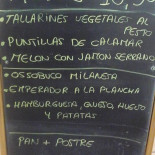 TALLARINES VEGETALES AL
PESTO
PUNTILLAS DE CALAMAR
MELON CON JAMON SERRANO
OSSOBUCO MILANESA
EMPERADOR A LA PLANCHA
HAMBURGUESA, QUESO, HUEVO
Y PATATAS
PAN + POSTRE